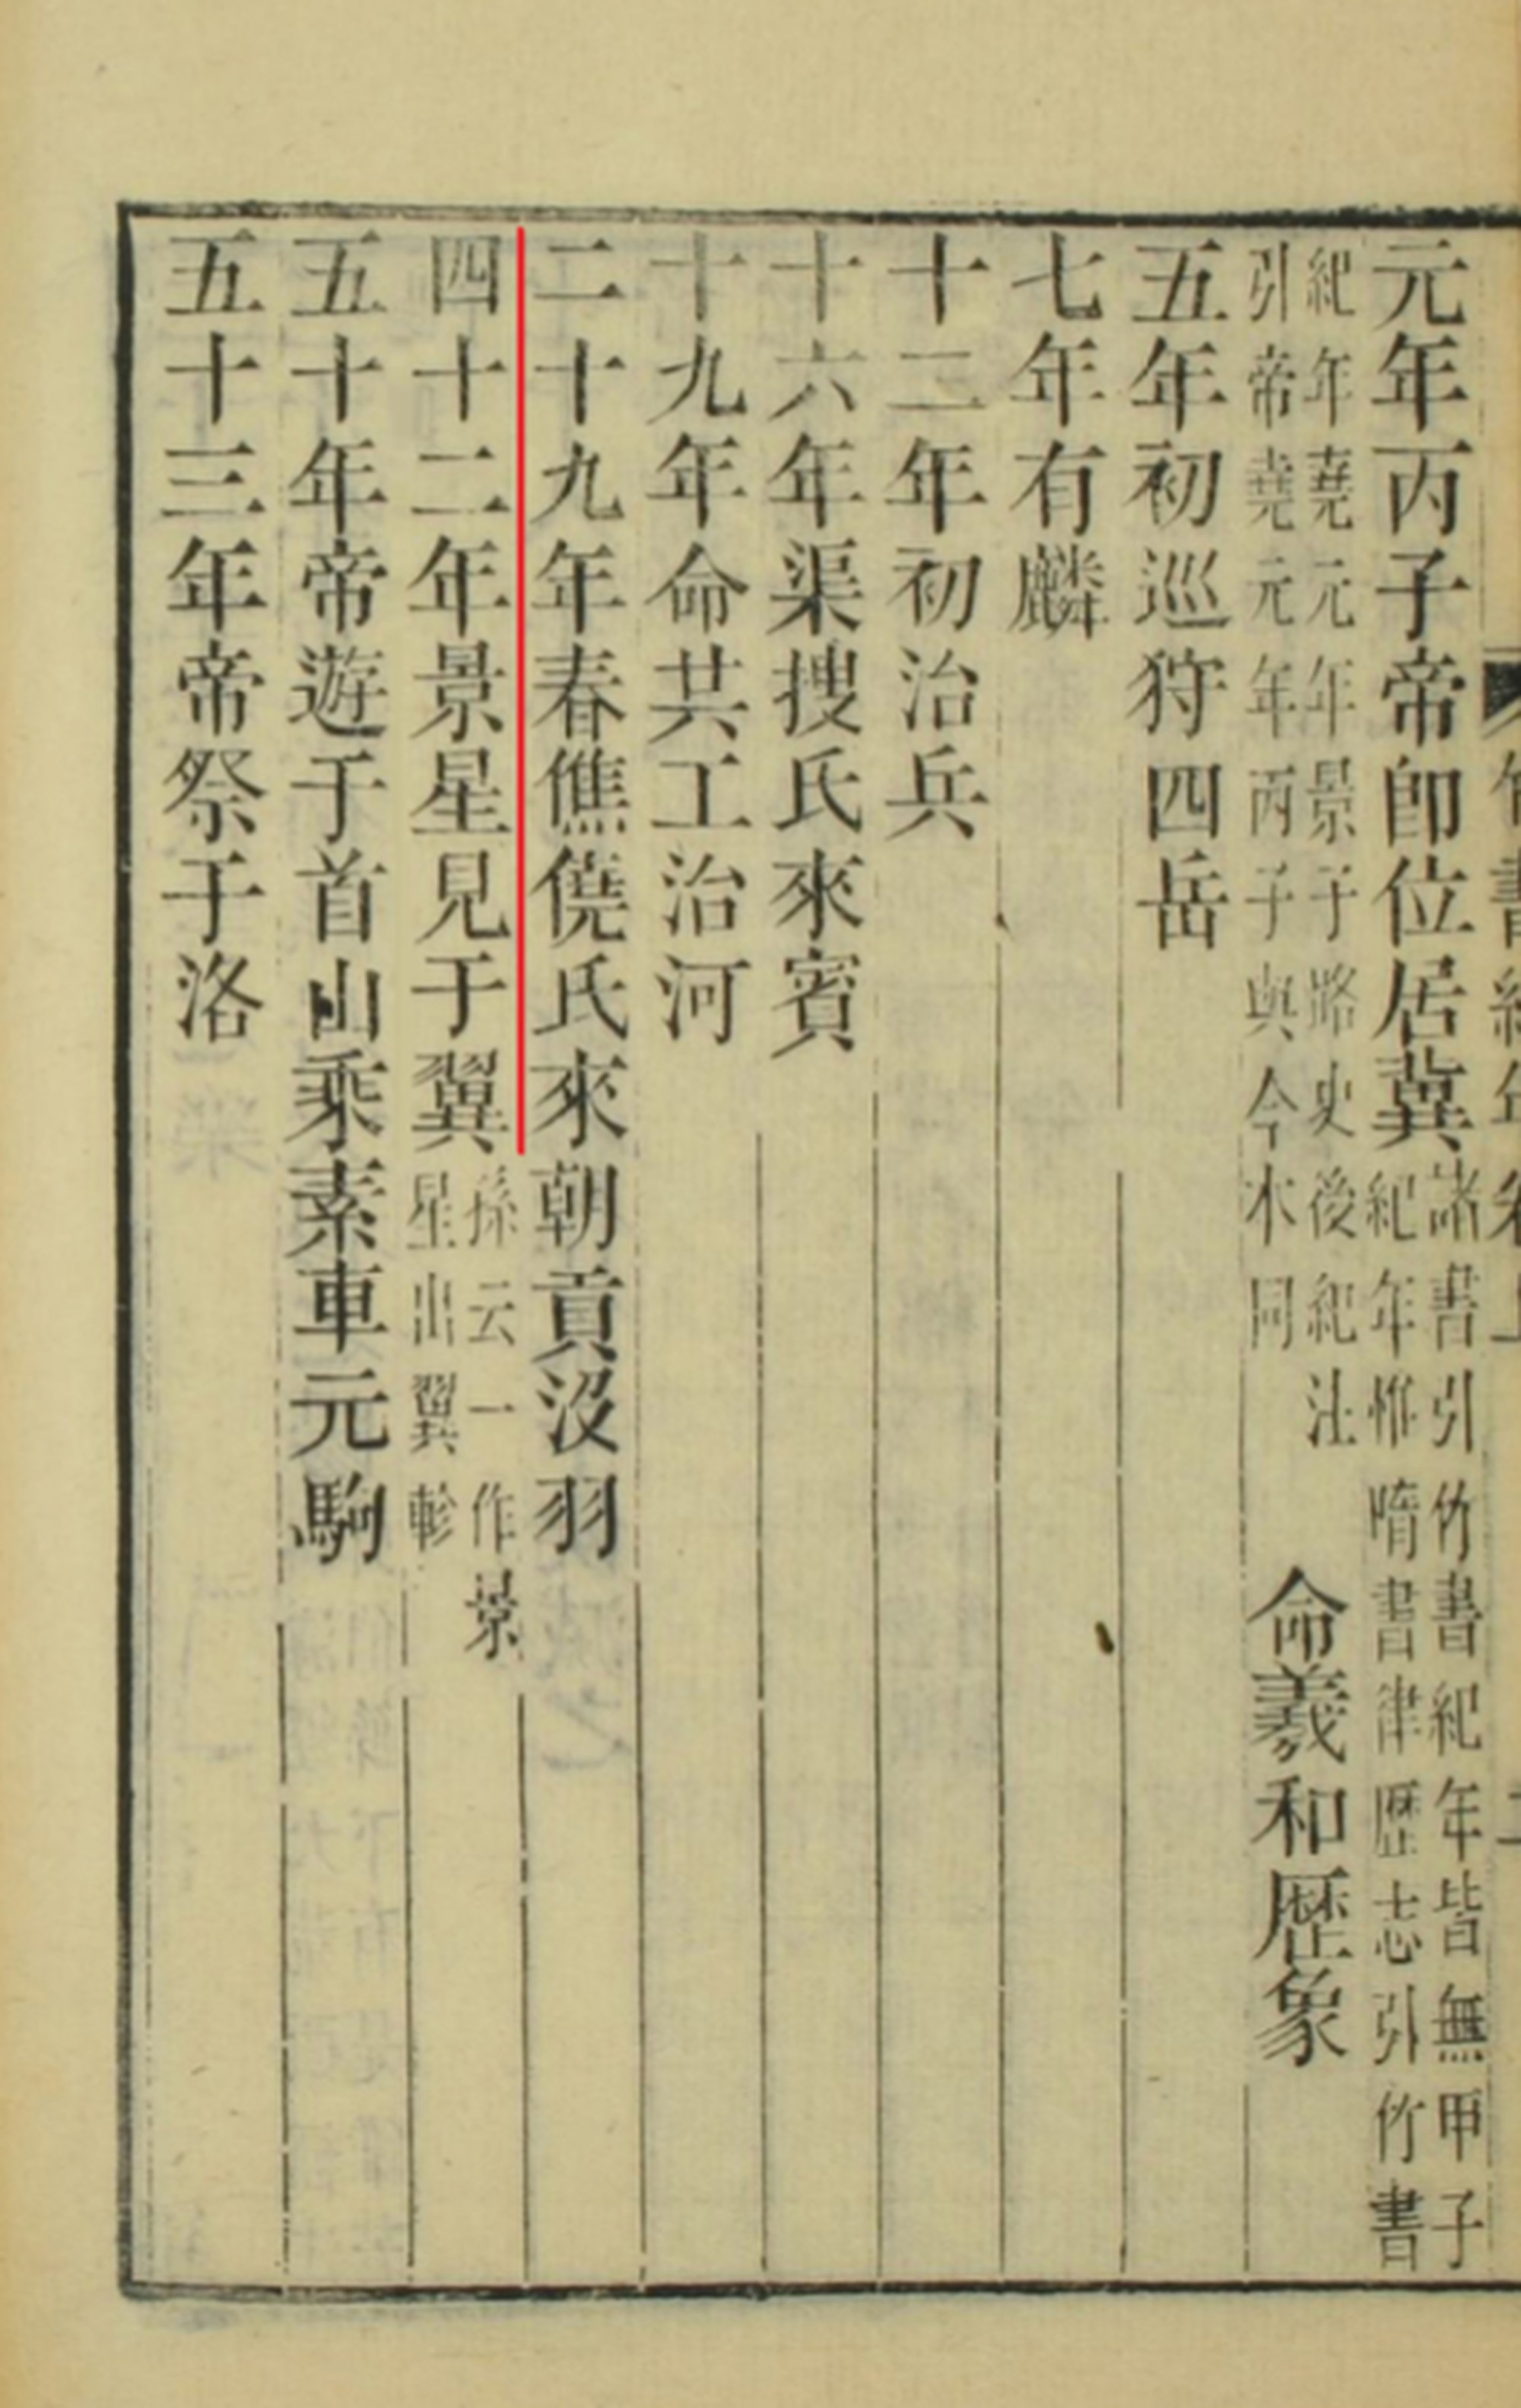 元年丙子帝卽位居冀諸書引竹書紀年皆無甲子
紀年惟隋書律歷志引竹書
紀年堯元年景子路史後紀注
引帝堯元年丙子與今本同
命羲和歷象
五年初巡狩四岳
七年有麟
十二年初治兵
十六年渠搜氏來賓
十九年命共工治河
二十九年春僬僥氏來朝貢沒羽
四十二年景星見于翼孫云一作景
星出翼軫
五十年帝遊于首山乘素車元駒
五十三年帝祭于洛